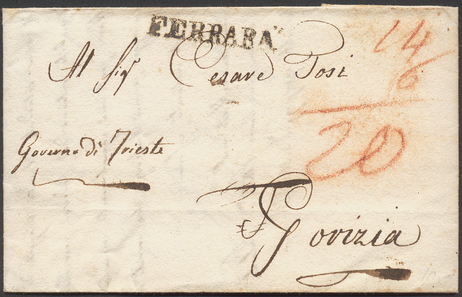 FERRARA
14
Al Sigr Cesare Posi
6
20
Governo di Trieste
Gorizia